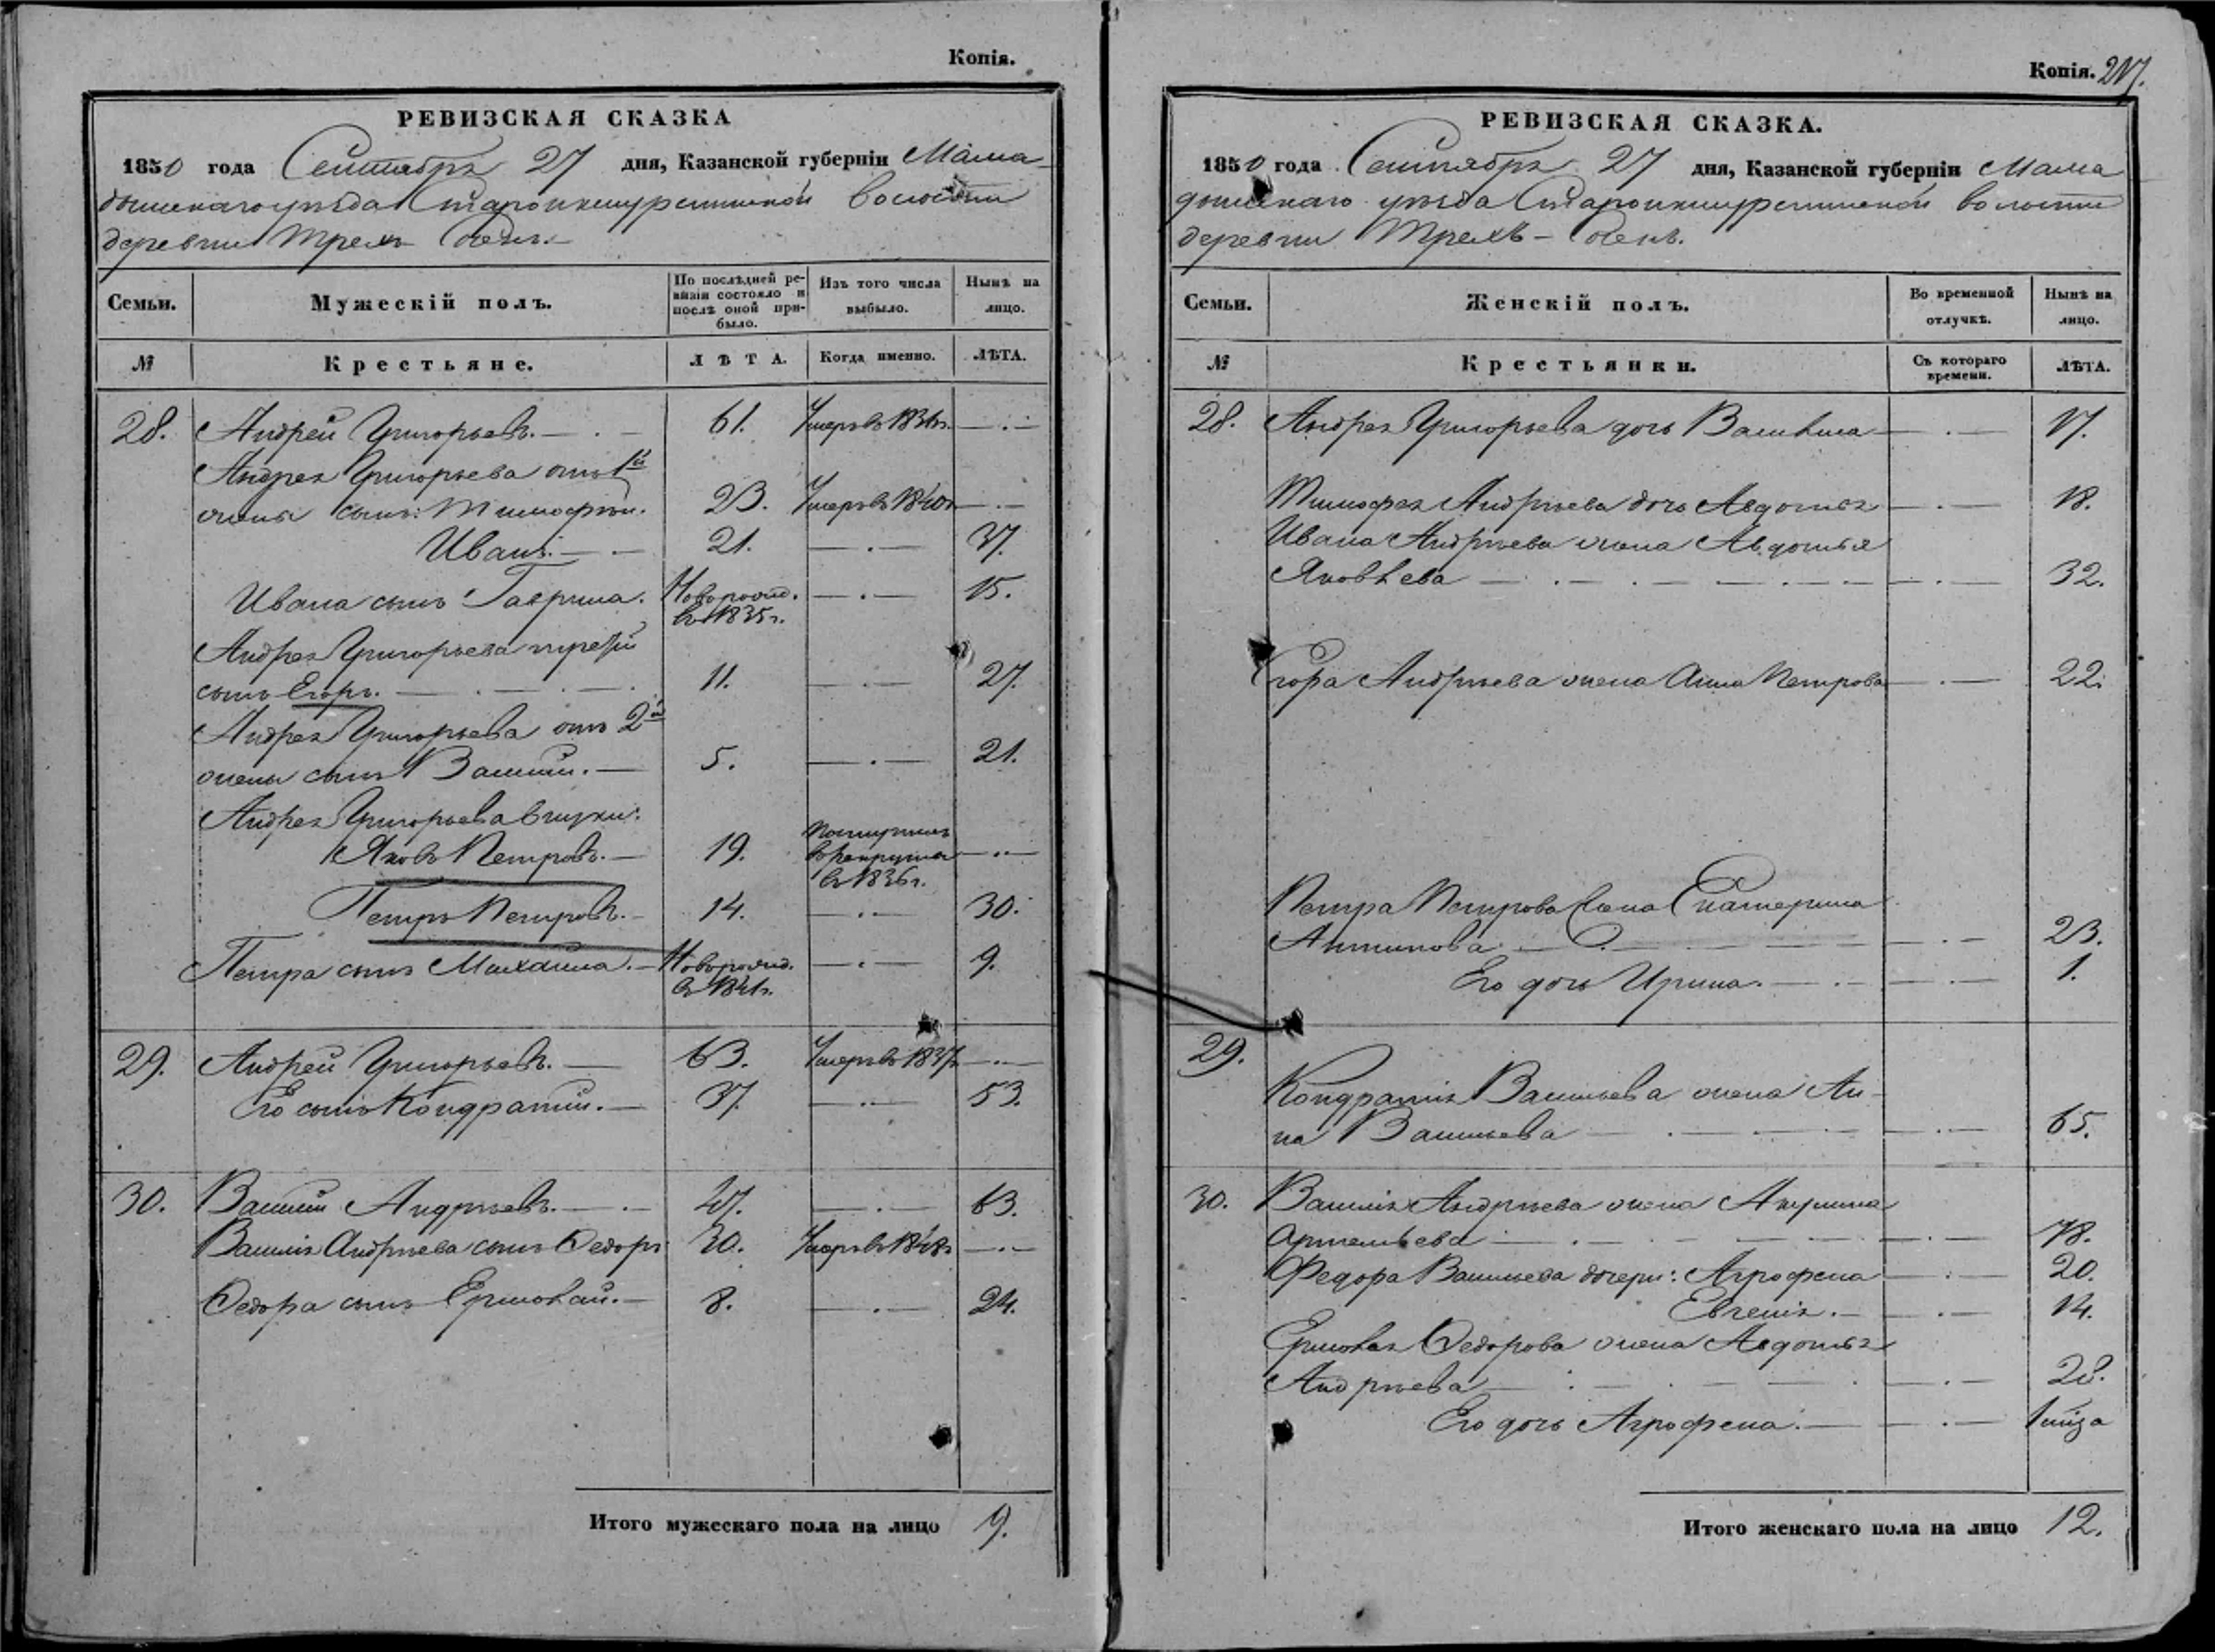 Копія.
РЕВИЗСКАЯ СКАЗКА
1850 года Сентября 27 дня, Казанской губерніи Мама-
дышскаго уѣзда волости
деревни Трехъ
Семьи.
Мужескій полъ.
По послѣдней ре-
визіи состояло и
послѣ оной при-
было.
Изъ того числа
выбыло.
Нынѣ на
лицо.
№
Крестьяне.
ЛѢТА.
Когда именно.
ЛѢТА.
28. Андрей Григорьевъ. 61. Умеръ въ
Андрея Григорьева отъ 1й
жены сынъ: Тимофѣй. 23. Умеръ въ 1840г
Иванъ. 21. 37.
Ивана сынъ Гаврила. Новорожд. 15.
въ 1835г.
Андрея Григорьева третій
сынъ Егоръ. 11. 27.
Андрея Григорьева отъ 2й
жены сынъ Василій. 5. 21.
Андрея Григорьева внуки:
Яковъ Петровъ. 19. поступилъ
въ рекруты
въ 1836г.
Петръ Петровъ. 14. 30.
Петра сынъ Михайла. Новорожд. 9.
въ 1841г.
29. Андрей Григорьевъ. 63. Умеръ въ 1837г
Его сынъ Кондратій. 37. 53.
30. Василій Андрѣевъ. 47. 63.
Василія Андрѣева сынъ Ѳедоръ 30. Умеръ въ 1848г
Ѳедора сынъ Ермолай. 8. 24.
Итого мужескаго пола на лицо 9.
Копія. 217.
РЕВИЗСКАЯ СКАЗКА.
1850 года Сентября 27 дня, Казанской губерніи Мама
дышскаго уѣзда волости
деревни Трехъ
Семьи.
Женскій полъ.
Во временной
отлучкѣ.
Нынѣ на
лицо.
№
Крестьянки.
Съ котораго
времени.
ЛѢТА.
28. Андрея Григорьева дочь 17.
Тимофея Андрѣева дочь Авдотья 18.
Ивана Андрѣева жена Авдотья
Яковлева 32.
Егора Андрѣева жена Анна Петрова 22.
Петра Петрова жена Екатерина
Антипова 23.
Его дочь Ирина. 1.
29.
Кондратія Васильева жена Ан-
на Васильева 65.
30. Василія Андрѣева жена Акулина
Артемьева 78.
Федора Васильева дочери: Агрофена 20.
Евгенія. 14.
Ермолая Ѳедорова жена Авдотья
Андрѣева 28.
Его дочь Агрофена.
Итого женскаго пола на лицо 12.